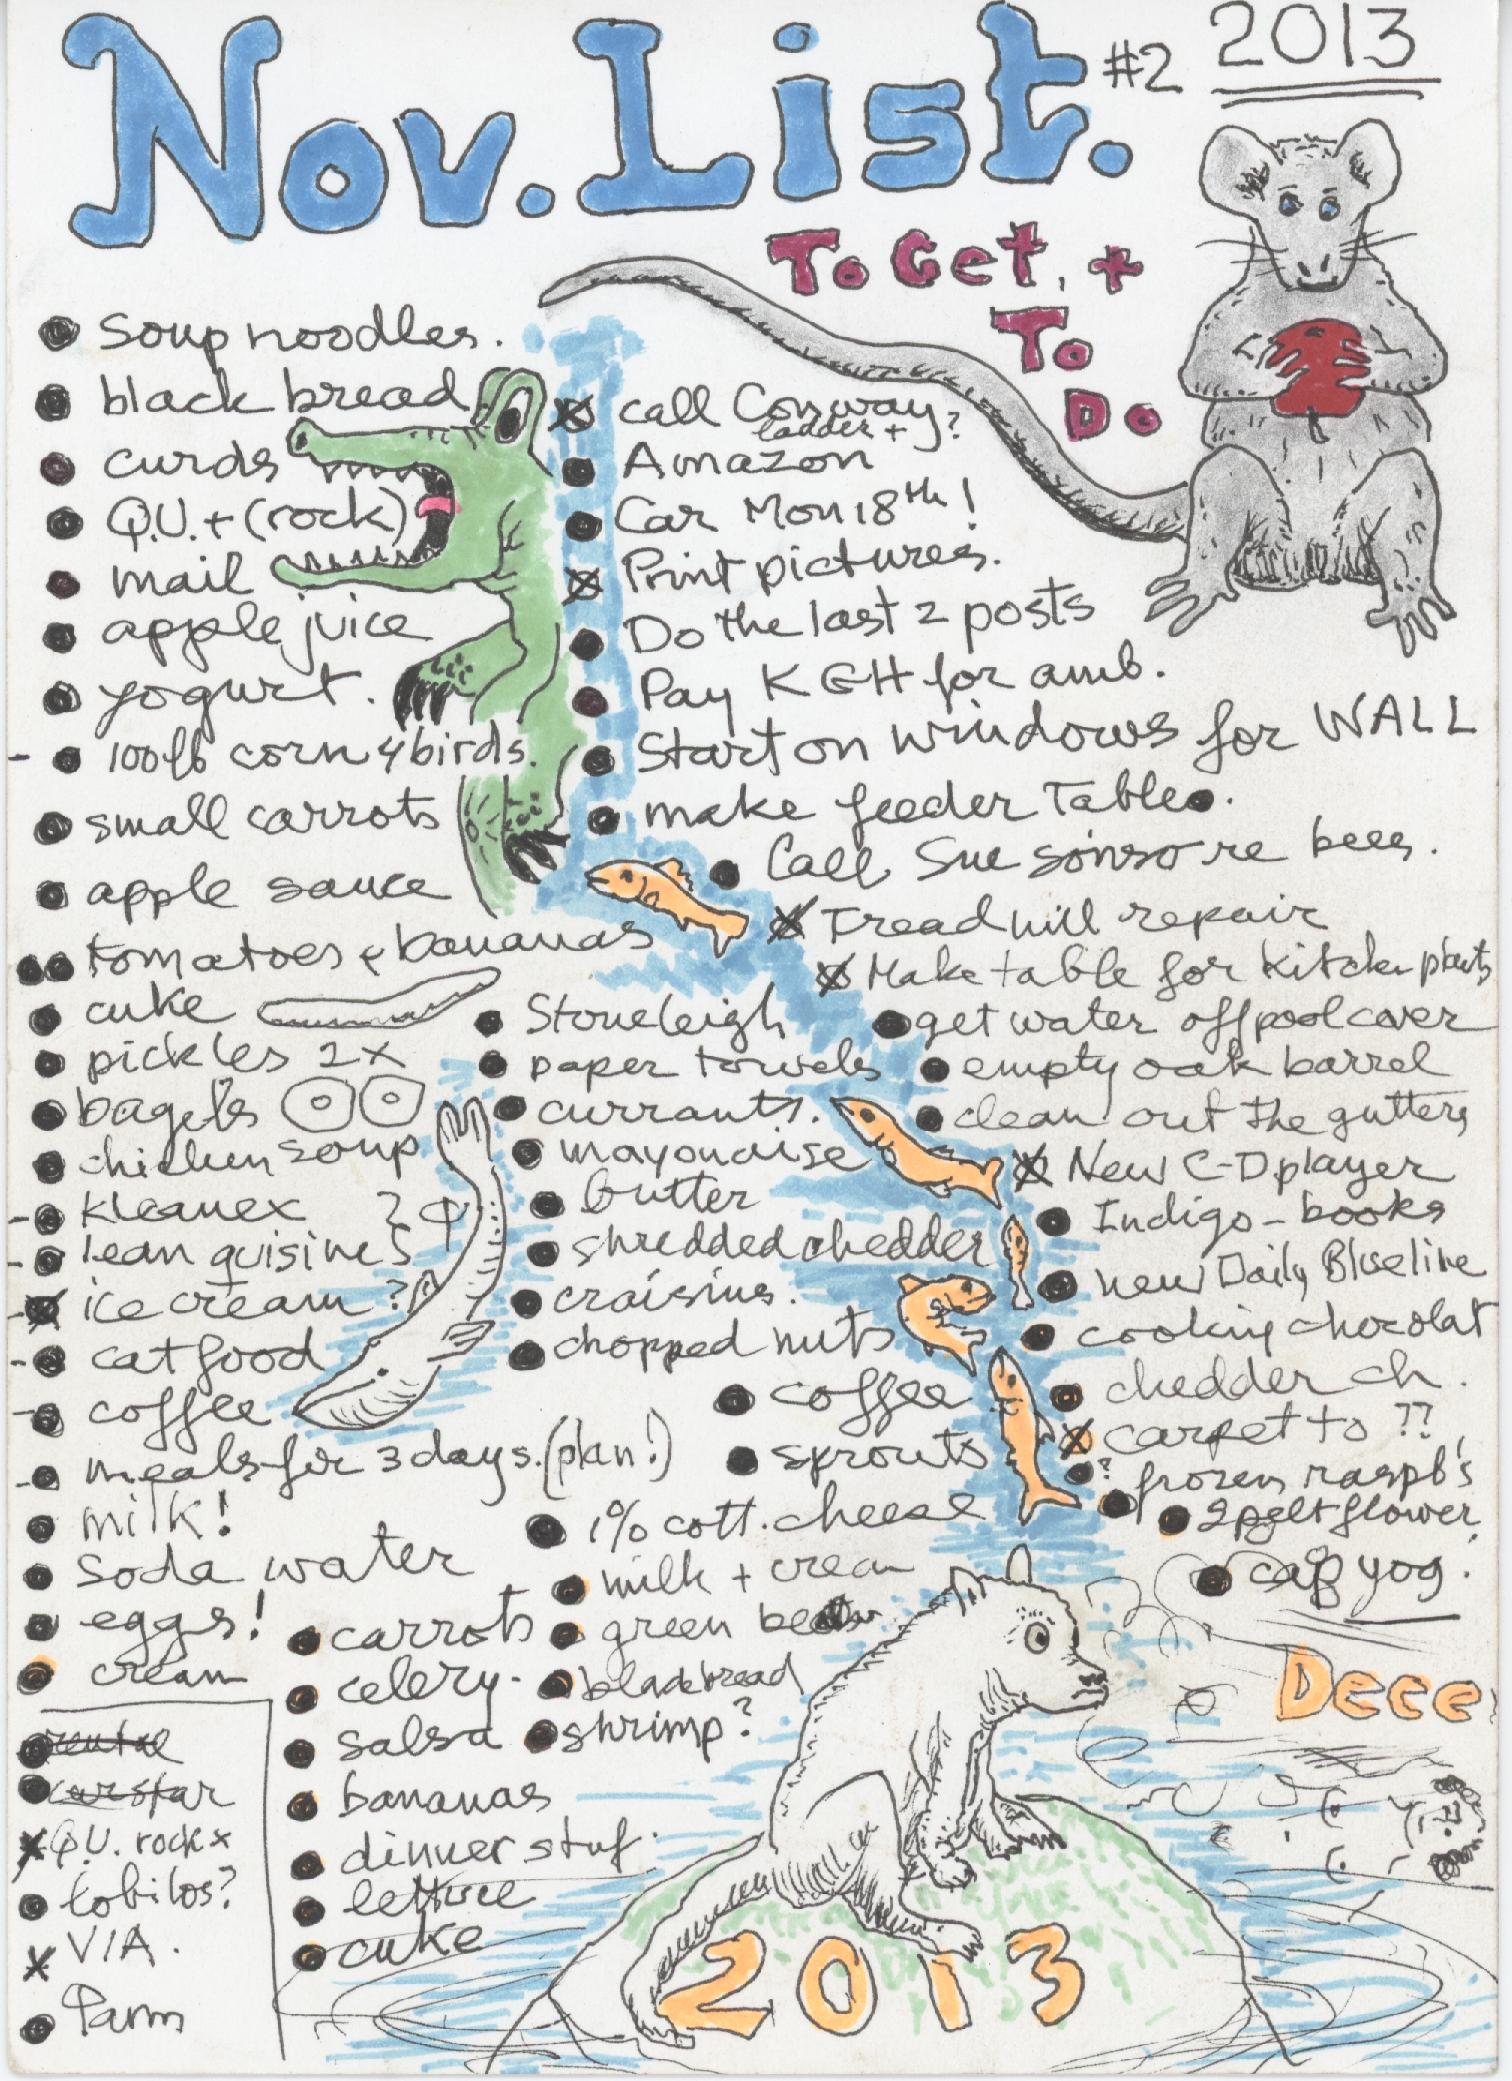 Nov. List. #2 2013
To Get, +
To
Do
Soup noodles.
black bread
curds
Q.U. + (rock)
mail
apple juice
yogurt.
100lb corn 4 birds.
small carrots
apple sauce
tomatoes & bananas
cuke
pickles 2x
bagels
chicken soup
kleanex ?
lean quisine
ice cream ?
cat food
coffee
meals for 3 days. (plan!)
milk!
Soda water
eggs!
cream
rental
car star
Q.U. rock x
tobilos?
VIA.
Parm
call Conway
ladder + ?
Amazon
Car Mon 18th!
Print pictures.
Do the last 2 posts
Pay KGH for amb.
Start on windows for WALL
make feeder Table.
Call Sue re bees.
Treadmill repair
Make table for Kitche plants
get water off pool cover
empty oak barrel
clean out the gutters
New C-D player
Indigo - books
new Daily Blueline
cooking chocolat
chedder ch.
carpet to ??
? frozen raspb's
cap yog.
Stoneleigh
paper towels
currants.
mayonaise
butter
shredded chedder
craisins.
chopped nuts
coffee
sprouts
1% cott. cheese
milk + cream
green
black bread
shrimp?
carrots
celery.
salsa
bananas
dinner stuf.
lettuce
cuke
Dece
2013